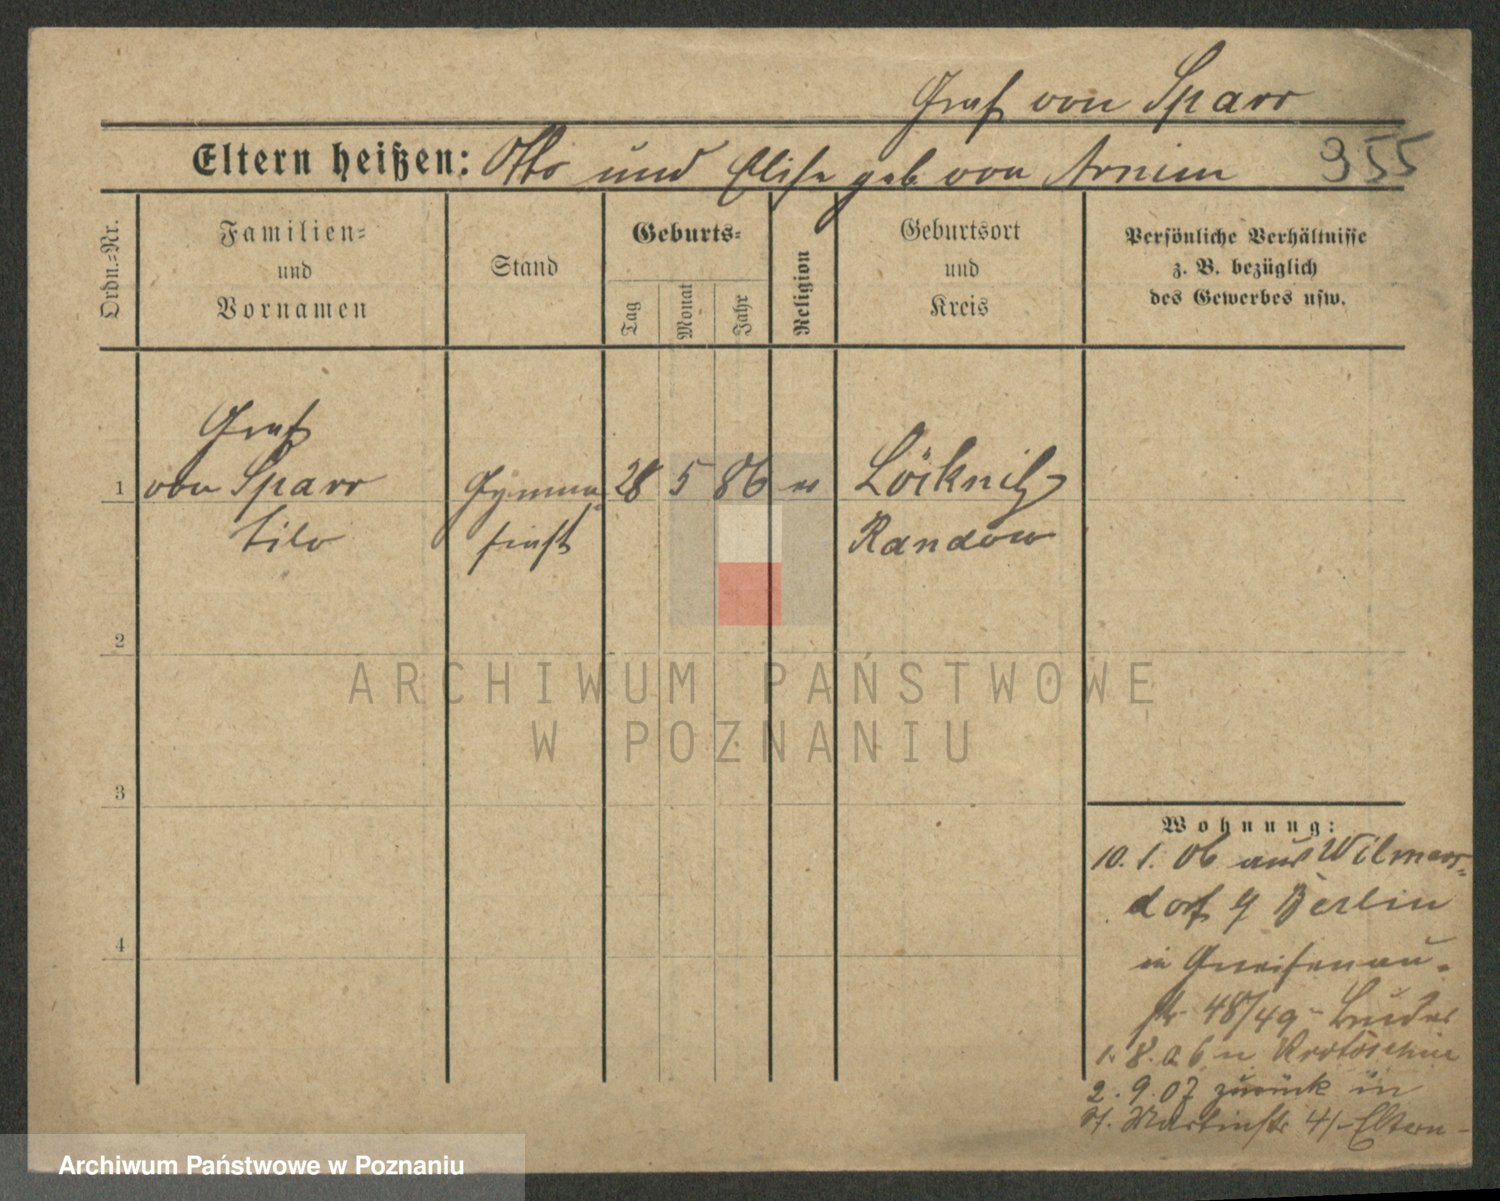 Graf von Sparr
Eltern heißen: Otto und Elise geb. von Arnim 355
Ordn.-Nr.
Familien-
und
Vornamen
Stand
Geburts-
Tag
Monat
Jahr
Religion
Geburtsort
und
Kreis
Persönliche Verhältnisse
z. B. bezüglich
des Gewerbes usw.
Graf
1 von Sparr Gymna 28 5 86 ev Löcknitz
Tilo siast Randow
2
3
4
Wohnung:
10. 1. 06 aus Wilmers-
dorf Berlin
in Gneisenau-
str 48/49 - Bruder
1. 8. 06 n Krotoschin
2. 9. 07 zurück in
St. Martinstr 41 - Eltern -
ARCHIWUM PAŃSTWOWE
W POZNANIU
Archiwum Państwowe w Poznaniu